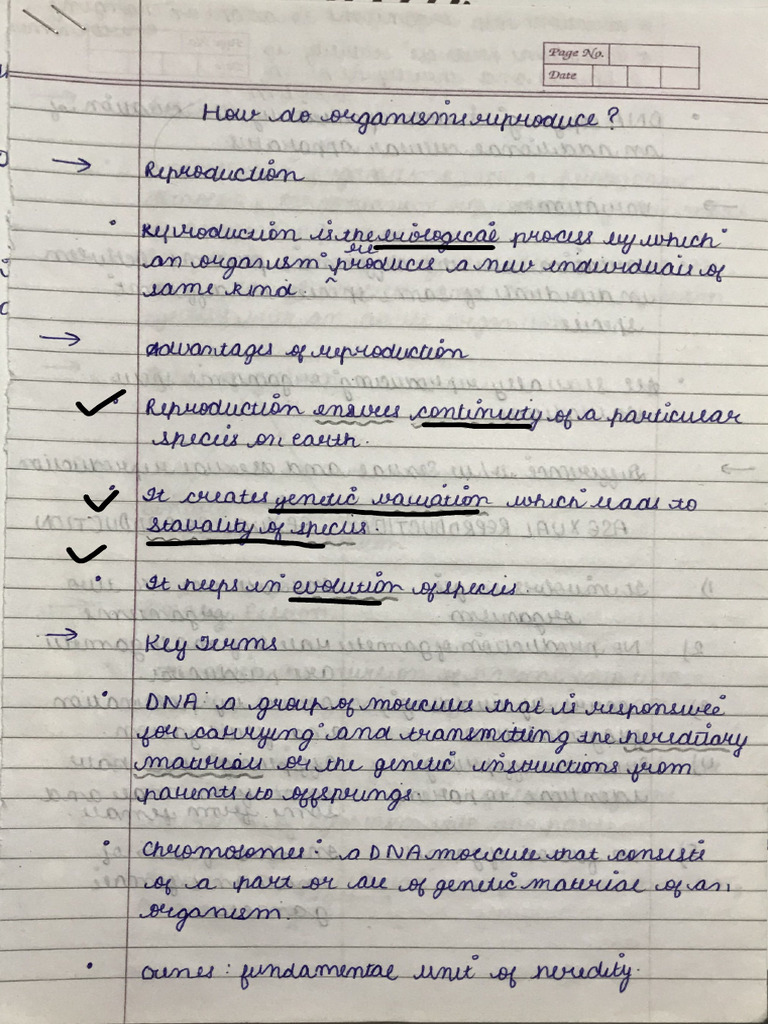 Page No.
Date
How do organisms reproduce?
→ Reproduction
• Reproduction is the biological process by which
an organism reproduces a new individual of
same kind.
→ Advantages of reproduction
• Reproduction ensures continuity of a particular
species on earth.
• It creates genetic variation which leads to
stability of species
• It helps in evolution of species.
→ Key Terms
• DNA: a group of molecules that is responsible
for carrying and transmitting the hereditary
material or the genetic instructions from
parents to offsprings.
• Chromosomes: a DNA molecule that consists
of a part or all of genetic material of an
organism.
• Genes: fundamental unit of heredity.